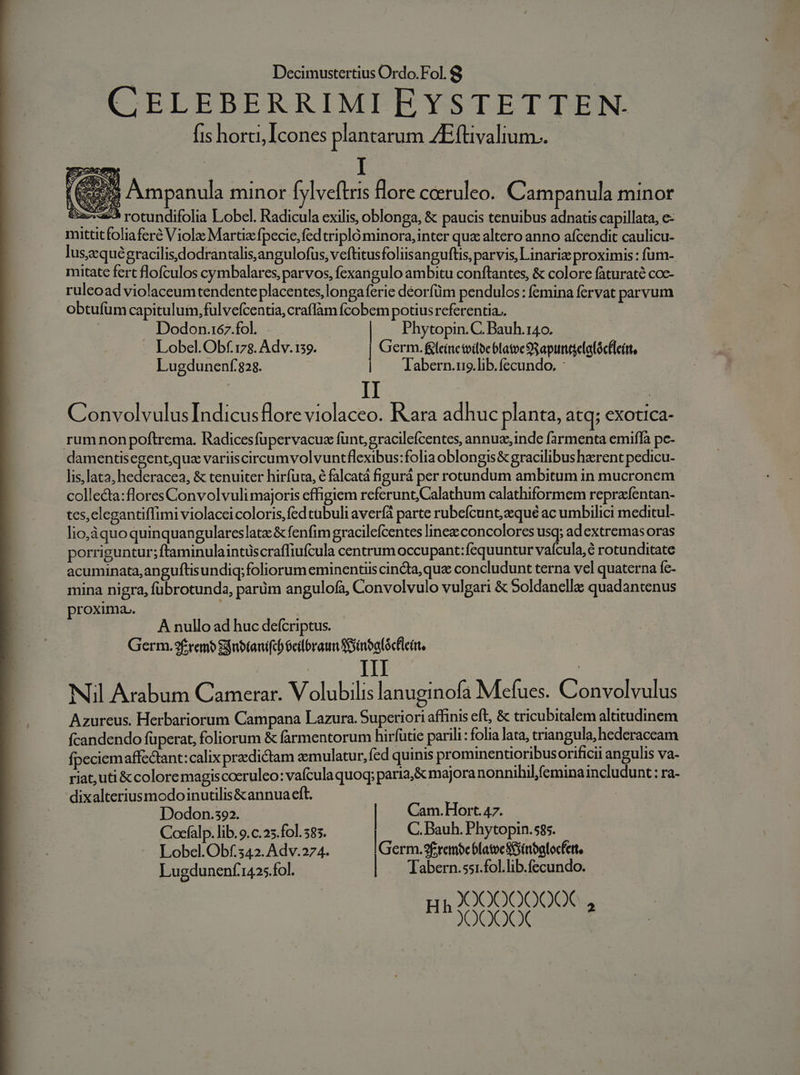 Decimustertius Ordo. Fol. 8
CELEBERRIMI EYSTETTEN-
ſis horti, Icones plantarum Æſtivalium.
I
CAmpanula minor ſylveſtris flore cœruleo. Campanula minor
rotundifolia Lobel. Radicula exilis, oblonga, & paucis tenuibus adnatis capillata, e-
mittit folia ferè Violæ Martiæ ſpecie, ſed triplò minora, inter quæ altero anno aſcendit caulicu-
lus, æquè gracilis, dodrantalis, anguloſus, veſtitus foliis anguſtis, parvis, Linariæ proximis: ſum-
mitate fert floſculos cymbalares, parvos, ſexangulo ambitu conſtantes, & colore ſaturatè cœ-
ruleo ad violaceum tendente placentes, longa ſerie deorſùm pendulos: ſemina ſervat parvum
obtuſum capitulum, fulveſcentia, craſſam ſcobem potius referentia.
Dodon. 167. fol.
Phytopin. C. Bauh. 140.
Lobel. Obſ. 178. Adv. 139.
Germ. Kleine wilde blawe Rapuntzelglöcklein.
Lugdunenſ. 828.
Tabern. 119. lib. ſecundo.
II
Convolvulus Indicus flore violaceo. Rara adhuc planta, atq; exotica-
rum non poſtrema. Radices ſupervacuæ ſunt, gracileſcentes, annuæ, inde ſarmenta emiſſa pe-
damentis egent, quæ variis circumvolvunt flexibus: folia oblongis & gracilibus hærent pedicu-
lis, lata, hederacea, & tenuiter hirſuta, è falcatá figurá per rotundum ambitum in mucronem
collecta: flores Convolvuli majoris effigiem referunt, Calathum calathiformem repræſentan-
tes, elegantiſſimi violacei coloris, ſed tubuli averſâ parte rubeſcunt, æquè ac umbilici meditul-
lio, à quo quinquangulares latæ & ſenſim gracileſcentes lineæ concolores usq; ad extremas oras
porriguntur; ſtaminula intùs craſſiuſcula centrum occupant: ſequuntur vaſcula, è rotunditate
acuminata, anguſtis undiq; foliorum eminentiis cincta, quæ concludunt terna vel quaterna ſe-
mina nigra, ſubrotunda, parùm anguloſa, Convolvulo vulgari & Soldanellæ quadantenus
proxima.
A nullo ad huc deſcriptus.
Germ. Fremd Indianiſch veilbraun Windglöcklein.
III
Nil Arabum Camerar. Volubilis lanuginoſa Meſues. Convolvulus
Azureus. Herbariorum Campana Lazura. Superiori affinis eſt, & tricubitalem altitudinem
ſcandendo ſuperat, foliorum & ſarmentorum hirſutie parili: folia lata, triangula, hederaceam
ſpeciem affectant: calix prædictam æmulatur, ſed quinis prominentioribus orificii angulis va-
riat, uti & colore magis cœruleo: vaſcula quoq; paria, & majora nonnihil, ſemina includunt: ra-
dix alterius modo inutilis & annua eſt.
Dodon. 392.
Cam. Hort. 47.
Cœſalp. lib. 9. c. 25. fol. 383.
C. Bauh. Phytopin. 585.
Lobel. Obſ. 342. Adv. 274.
Germ. Fremde blawe Windglocken.
Lugdunenſ. 1425. fol.
Tabern. 551. fol. lib. ſecundo.
Hh XXXXXXXX 2
XXXXX